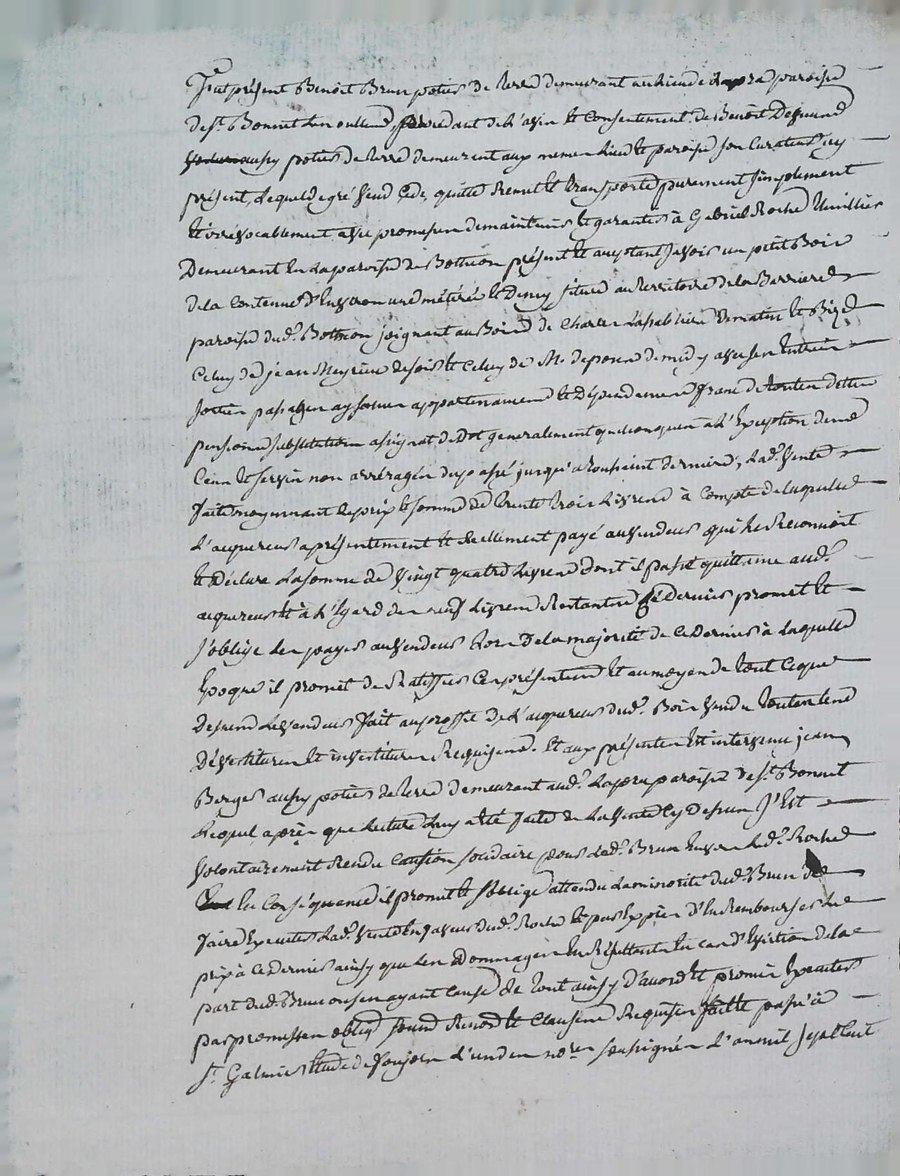 Fut présent Benoit Brun potier de terre demeurant au lieu de Lapra paroisse
de St. Bonnet Les oulles, procedant de l'avis et Consentement de Benoit Desjunes
aussy potier de terre demeurent aux meme Lieu et paroisse son Curateur icy
présent, Lequel de gré vend Cede, quitte Remet et transporte purement simplement
et irrévocablement avec promesse de maintenir et garantir à Gabriel Roche
Demeurant en La paroisse de Botheon présent et acceptant Savoir un petit Bois
de la Contenue d'Environ une méterée et Demy située au territoire de la Barriere
paroisse dud. Botheon joignant au Bois de Charles de matin et Bize
Celuy de jean Meyrieu de soir et Celuy de Mr. de midy avec ses entrées
sorties passages aysances appartenances et Dépendances franc de toutes dettes
pensions substitution assignat de Dot generalement quelconques à l'Exception de
Cens et servis non arréragés du passé jusqu'a toussaint derniere, Lad. Vente
faite moyennant Le prix et somme de trente trois Livres à Compte de laquelle
L'acquereur a présentement et Reellement payé au vendeur qui Le Reconnoit
et Déclare La somme de vingt quatre Livres dont il passe quittance aud.
acquereur Et à l'Egard des neuf Livres Restantes Ce Dernier promet et
s'oblige Les payer au vendeur Lors de la majorité de Ce Dernier à Laquelle
Epoque il promet de Ratiffier Ces présentes et au moyen de tout Ce que
Dessus Le vendeur fait au proffit de L'acquereur dud. Bois vendu toutes Les
Dévestitures et investitures Requises. Et aux présentes Est intervenu jean
Berger aussy potier de terre demeurant aud. Lapra paroisse de St. Bonnet
Lequel après que Lecture Luy a été faite de La Vente Cy Dessus S'Est
volontairement Rendu Caution solidaire pour Led. Brun Envers Led. Roche
En Conséquence il promet et s'oblige attendu La minorité dud. Brun de
faire Executer Lad. Vente En faveur dud. Roche et par Exprès d'En Rembourser Le
prix à Ce Dernier ainsy que Les Dommages En Resultants En cas d'Eviction de la
part dud. Brun ou ses ayant Cause de tout ainsy D'acord et promis Executer
par promesses oblig. soumis. Renon. et Clauses Requises faitte passé à
St. Galmier Etude de Soujeon l'un des nores soussignés L'an mil sept Cent